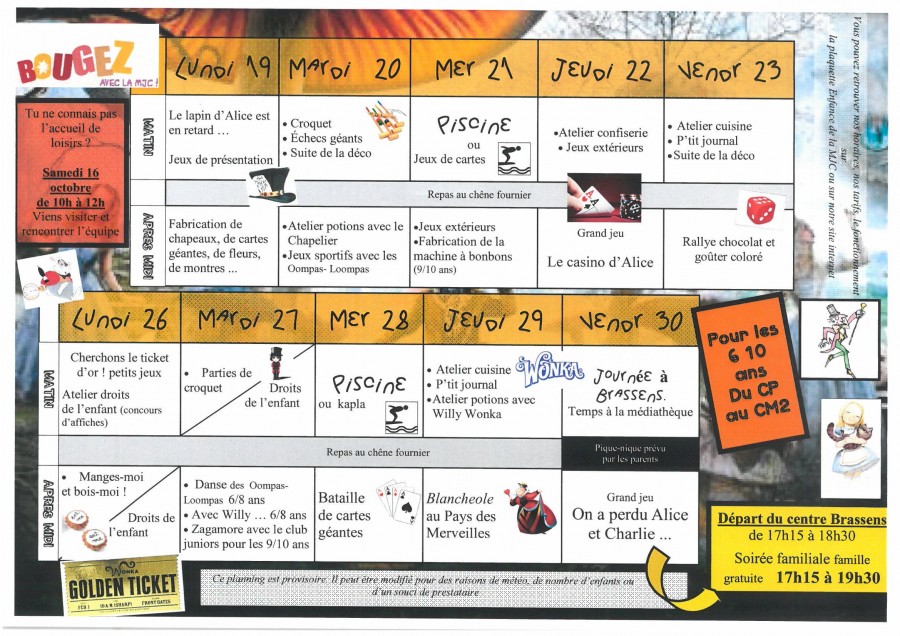 BOUGEZ
AVEC LA MJC !
Tu ne connais pas
l'accueil de
loisirs ?
Samedi 16
octobre
de 10h à 12h
Viens visiter et
rencontrer l'équipe
Lundi 19
Mardi 20
Mer 21
Jeudi 22
Vendr 23
MATIN
Le lapin d'Alice est
en retard ...
Jeux de présentation
• Croquet
• Échecs géants
• Suite de la déco
Piscine
ou
Jeux de cartes
•Atelier confiserie
• Jeux extérieurs
• Atelier cuisine
• P'tit journal
•Suite de la déco
Repas au chêne fournier
APRES MIDI
Fabrication de
chapeaux, de cartes
géantes, de fleurs,
de montres ...
•Atelier potions avec le
Chapelier
• Jeux sportifs avec les
Oompas- Loompas
•Jeux extérieurs
•Fabrication de la
machine à bonbons
(9/10 ans)
Grand jeu
Le casino d'Alice
Rallye chocolat et
goûter coloré
Vous pouvez retrouver nos horaires, nos tarifs, le fonctionnement
sur
la plaquette Enfance de la MJC ou sur notre site internet
Lundi 26
Mardi 27
Mer 28
Jeudi 29
Vendr 30
MATIN
Cherchons le ticket
d'or ! petits jeux
Atelier droits
de l'enfant (concours
d'affiches)
• Parties de
croquet
Droits
de l'enfant
Piscine
ou kapla
• Atelier cuisine
• P'tit journal
•Atelier potions avec
Willy Wonka
WONKA
Journée à
Brassens.
Temps à la médiathèque
Repas au chêne fournier
Pique-nique prévu
par les parents
APRES MIDI
• Manges-moi
et bois-moi !
Droits de
l'enfant
• Danse des Oompas-
Loompas 6/8 ans
• Avec Willy ... 6/8 ans
• Zagamore avec le club
juniors pour les 9/10 ans
Bataille
de cartes
géantes
Blancheole
au Pays des
Merveilles
Grand jeu
On a perdu Alice
et Charlie ...
Pour les
6 10
ans
Du CP
au CM2
Départ du centre Brassens
de 17h15 à 18h30
Soirée familiale famille
gratuite 17h15 à 19h30
WONKA
GOLDEN TICKET
10 A.M. (SHARP)
FRONT GATES
Ce planning est provisoire. Il peut être modifié pour des raisons de météo, de nombre d'enfants ou
d'un souci de prestataire